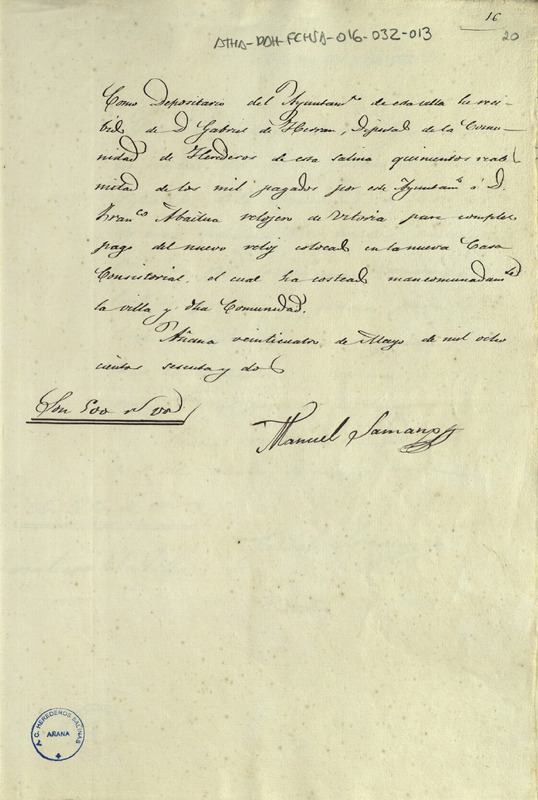 16
ATHA-DAH-FCHSA-016-032-013
20
Como Depositario del Ayuntam.to de esta villa he reci-
bido de D. Gabriel de Herran, Diputado de la Comu-
nidad de Herederos de esta salina quinientos reales
mitad de los mil pagados por este Ayuntam.to á D.
Fran.co Abaitua relojero de Vitoria para completo
pago del nuevo reloj colocado en la nueva Casa
Consistorial, el cual ha costeado mancomunadam.te
la villa y dha Comunidad.
Añana veinticuatro de Mayo de mil ocho
cientos sesenta y dos
Son 500 r.s von
Manuel Samano
A.C. HEREDEROS SALINAS
AÑANA